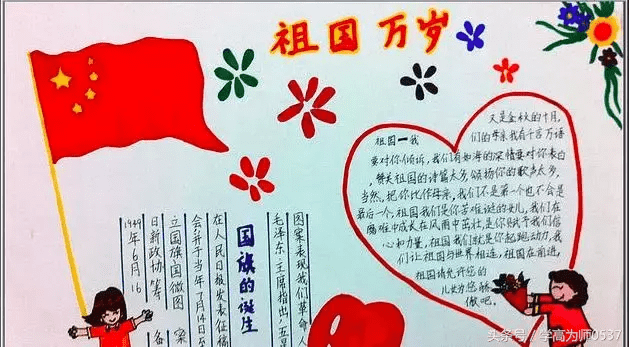 祖国万岁
又是金秋的十月,
祖国一我们的母亲我有千言万语
要对你倾诉,我们有如海的深情要对你表白
,赞美祖国的诗篇太多,颂扬你的歌声太多,
当然,把你比作母亲,我们不是第一个也不会是
最后一个,祖国我们是你苦难诞的女儿,我们在
腐难中成长在风雨中茁壮,是你赋予我们信
心和力量,祖国我们就是你起跑动力,我
们让祖国与世界相连,祖国在前进,
祖国请允许您的
儿女为您骄
傲吧。
国旗的诞生
1949年6月16
日新政协筹备
立国旗国徽图案
会并于当年7月14日至
在人民日报发表征稿
毛泽东主席指出:五
图案表现我们革命人
头条号/学高为师0537